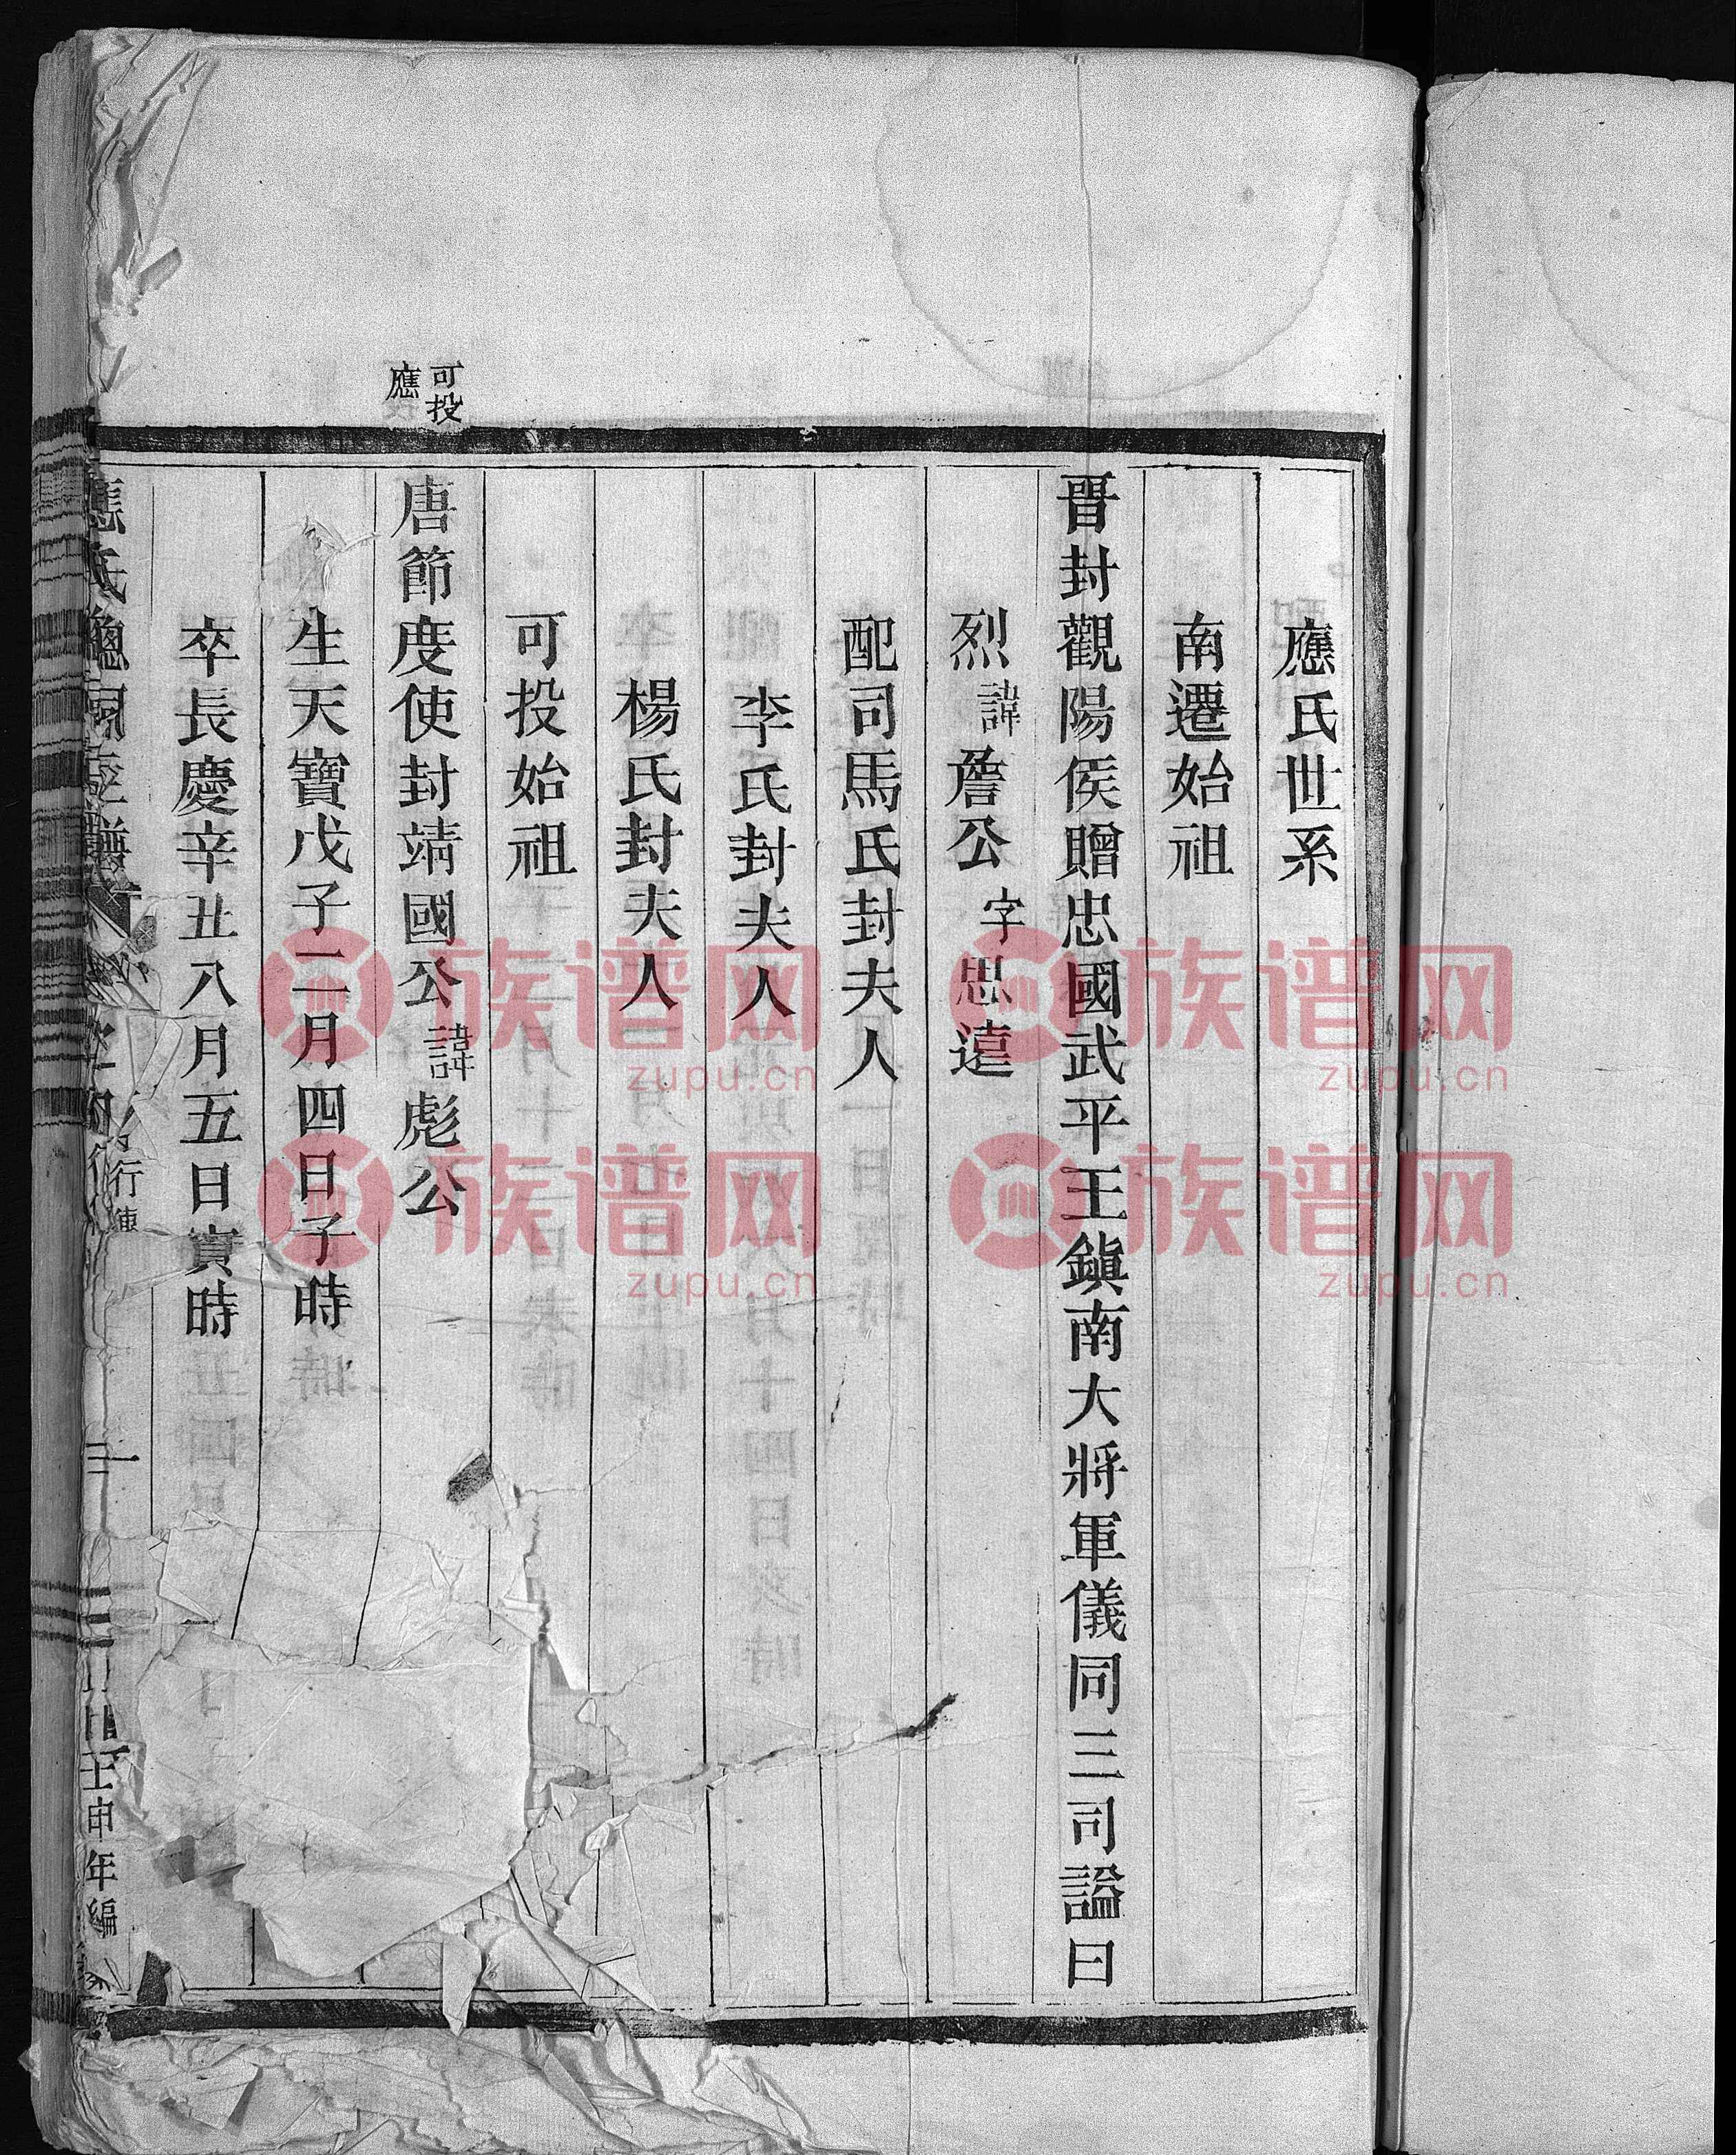 應氏世系
南遷始祖
晋封觀陽侯贈忠國武平王鎭南大將軍儀同三司謚曰
烈諱詹公字思遠
配司馬氏封夫人
李氏封夫人
楊氏封夫人
可投始祖
可投
應
唐節度使封靖國公諱彪公
生天寶戊子二月四日子時
卒長慶辛丑八月五日寅時
應氏總祠
行
一
壬申年編
族谱网
zupu.cn
族谱网
zupu.cn
族谱网
zupu.cn
族谱网
zupu.cn